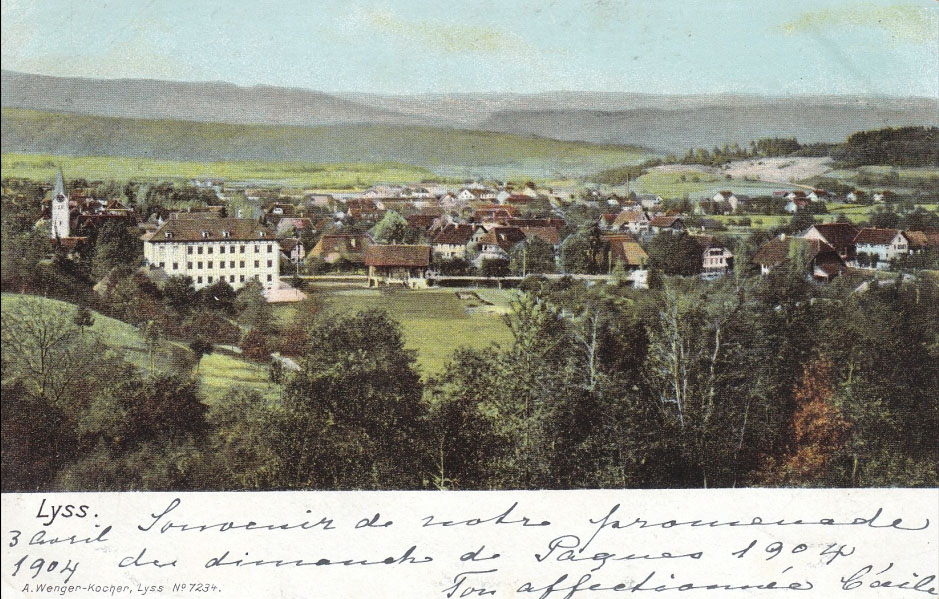 Lyss.
3 Avril Souvenir de notre promenade
1904 du dimanche de Pâques 1904
Ton affectionnée Cécile
A. Wenger-Kocher, Lyss Nº 7234.